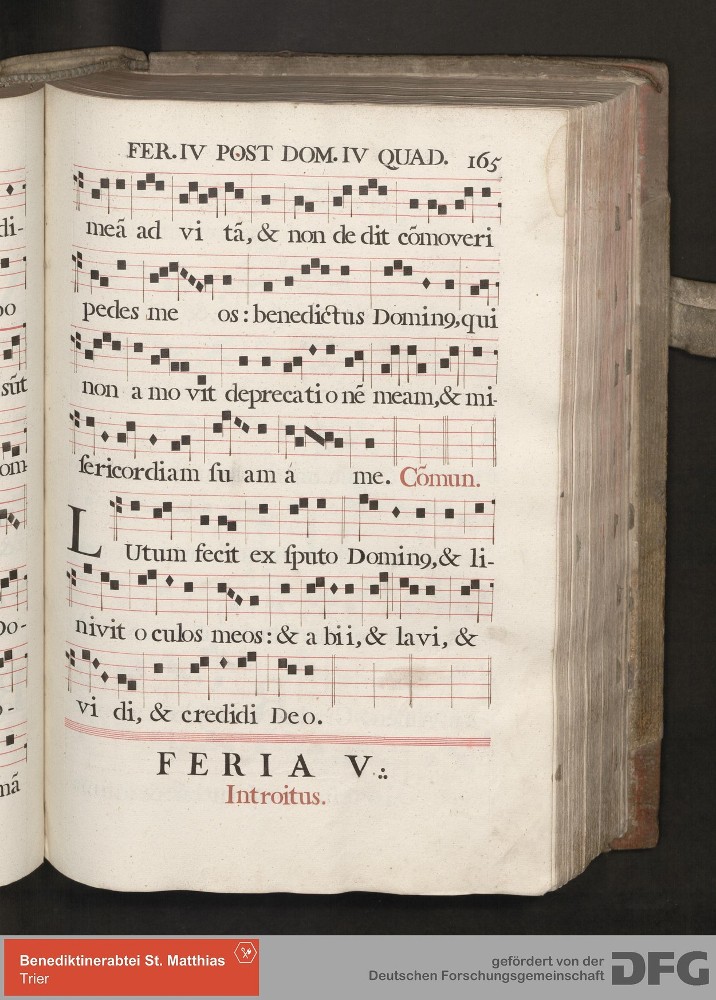 FER. IV POST DOM. IV QUAD. 165
meã ad vi tã, & non de dit cõmoveri
pedes me os: benedictus Domin9, qui
non a mo vit deprecati o nẽ meam, & mi-
ſericordiam ſu am á me. Cõmun.
LUtum fecit ex ſputo Domin9, & li-
nivit o culos meos: & a bi i, & lavi, &
vi di, & credidi Deo.
FERIA V.
Introitus.
di-
sũt
om-
Do-
mã
Benediktinerabtei St. Matthias
Trier
gefördert von der
Deutschen Forschungsgemeinschaft
DFG